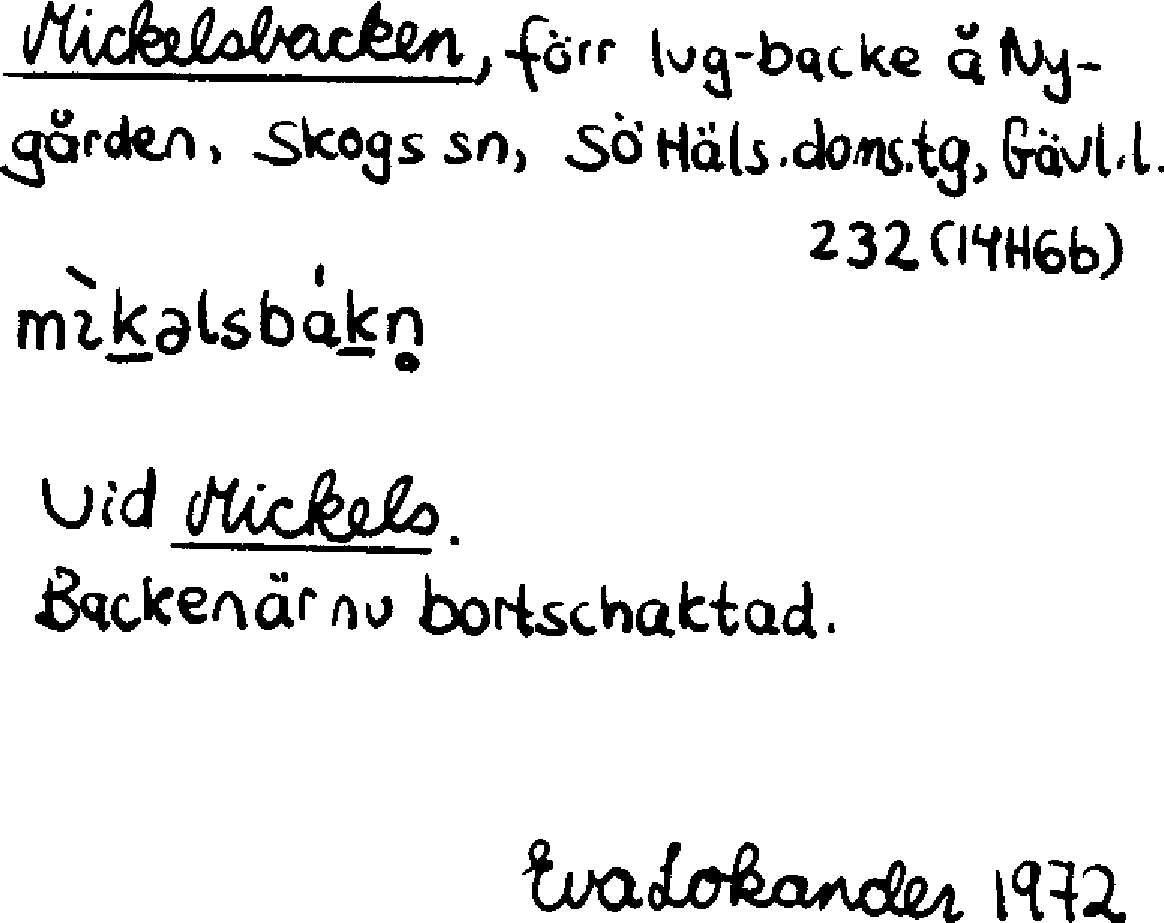 Mickelsbacken, förr lug-backe å Ny-
gården, Skogs sn, Sö Häls. doms.tg, Gävl.l.
232 (14H6b)
mɩ̀k̲əlsbák̲n̥
Vid Mickels.
Backen är nu bortschaktad.
Eva Lokander 1972